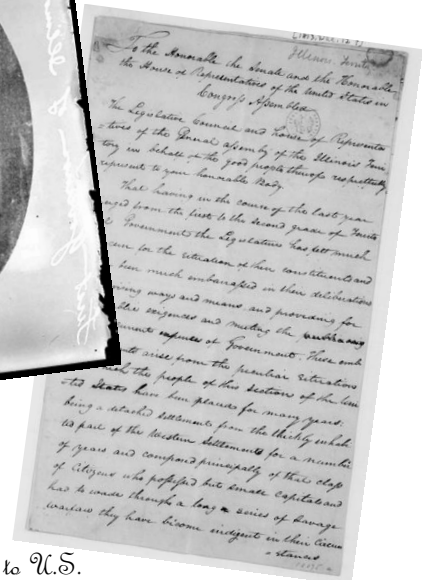 Illinois Territ
To the Honorable the Senate and the Honorable
the House of Representatives of the United States in
Congress Assembled
The Legislative Council and House of Representa
tives of the General assembly of the Illinois Terri
tory in behalf of the good people thereof respectfully
represent to your honorable Body.
That having in the course of the last year
from the first to the second grade of Territo
Government the Legislature has felt much
for the situation of their constituents and
been much embarrassed in their deliberations
ways and means and providing for
exigences and meeting the
expenses of Government. These emb
arise from the peculiar situations
the people of this section of the Uni
ted States have been placed for many years:
being a detached settlements from the thickly inhabi
ted part of the Western Settlements for a number
of years and composed principally of that class
of Citizens who possessed but small capitals and
had to wade through a long series of Savage
warfare they have become indigent in their Circum
stances
to U.S.